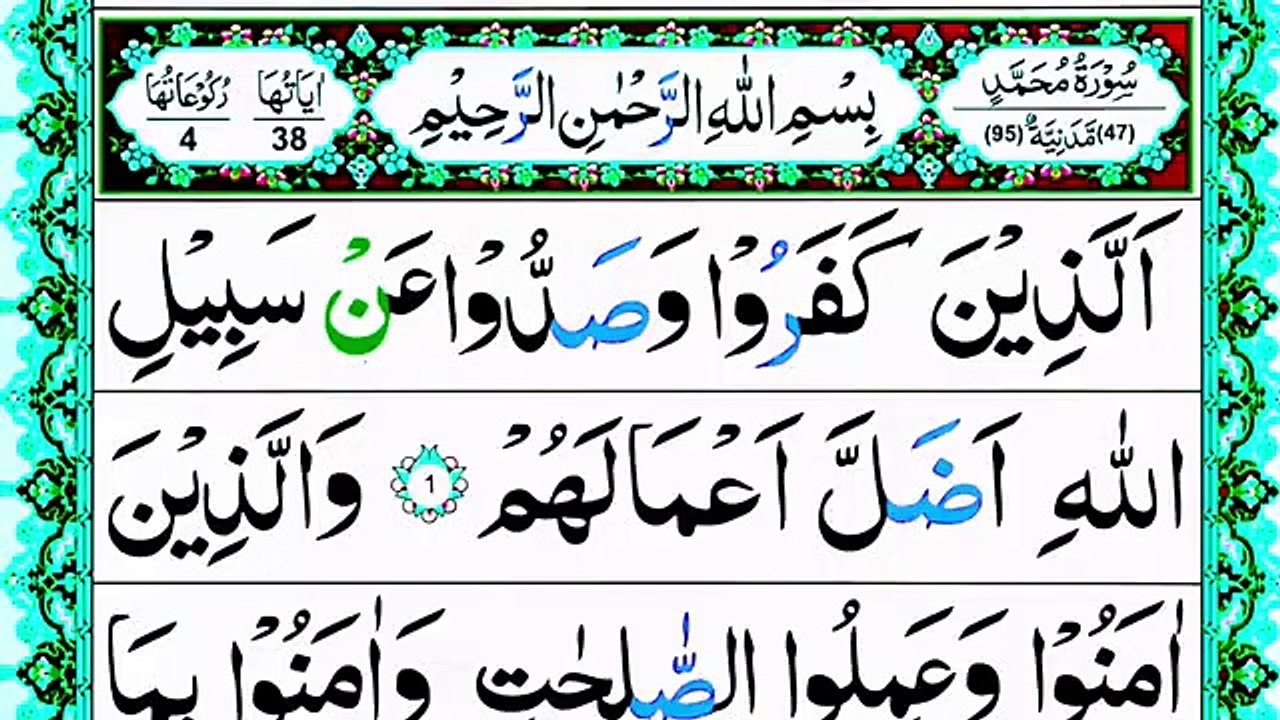 سُوْرَةُ مُحَمَّدٍ
(47) مَّدَنِيَّةٌ (95)
بِسْمِ اللّٰهِ الرَّحْمٰنِ الرَّحِيْمِ
اٰيَاتُهَا 38
رُكُوْعَاتُهَا 4
اَلَّذِيْنَ كَفَرُوْا وَصَدُّوْا عَنْ سَبِيْلِ
اللّٰهِ اَضَلَّ اَعْمَالَهُمْ 1 وَالَّذِيْنَ
اٰمَنُوْا وَعَمِلُوا الصّٰلِحٰتِ وَاٰمَنُوْا بِمَا